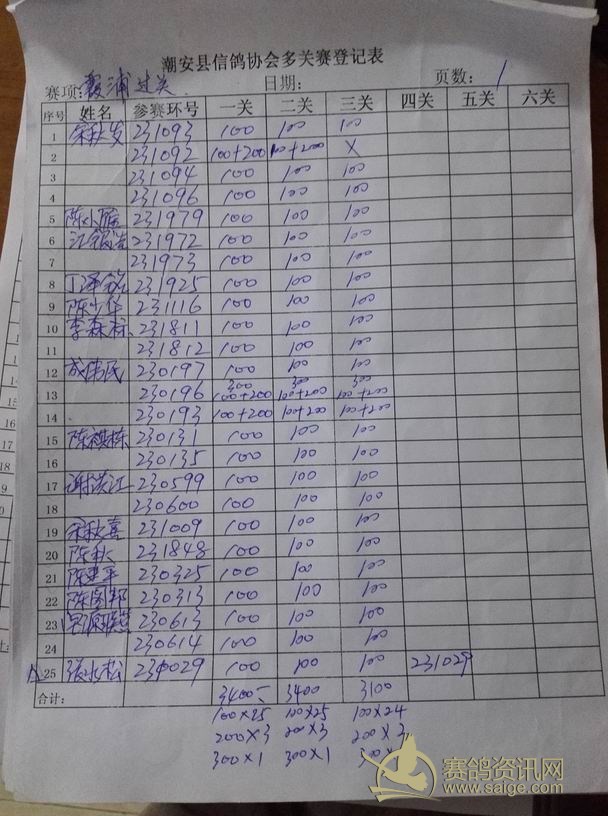 潮安县信鸽协会多关赛登记表
赛项:霞浦过关 日期: 页数: 1
序号 姓名 参赛环号 一关 二关 三关 四关 五关 六关
1 宋秋发 231093 100 100 100
2 231092 100+200 100+200 X
3 231094 100 100 100
4 231096 100 100 100
5 231979 100 100 100
6 231972 100 100 100
7 231973 100 100 100
8 231925 100 100 100
9 陈少华 231116 100 100 100
10 李森林 231811 100 100 100
11 231812 100 100 100
12 成伟民 230197 100 100 100
300 300 300
13 230196 100+200 100+200 100+200
14 230193 100+200 100+200 100+200
15 陈祺栋 230131 100 100 100
16 230135 100 100 100
17 谢洪江 230599 100 100 100
18 230600 100 100 100
19 宋秋喜 231009 100 100 100
20 陈秋 231848 100 100 100
21 陈建平 230325 100 100 100
22 230313 100 100 100
23 230613 100 100 100
24 230614 100 100 100
25 张水松 230029 100 100 100 231029
合计: 3400 3400 3100
100×25 100×25 100×24
200×3 200×3 200×
300×1 300×1 300×
赛鸽资讯网
www.saige.com